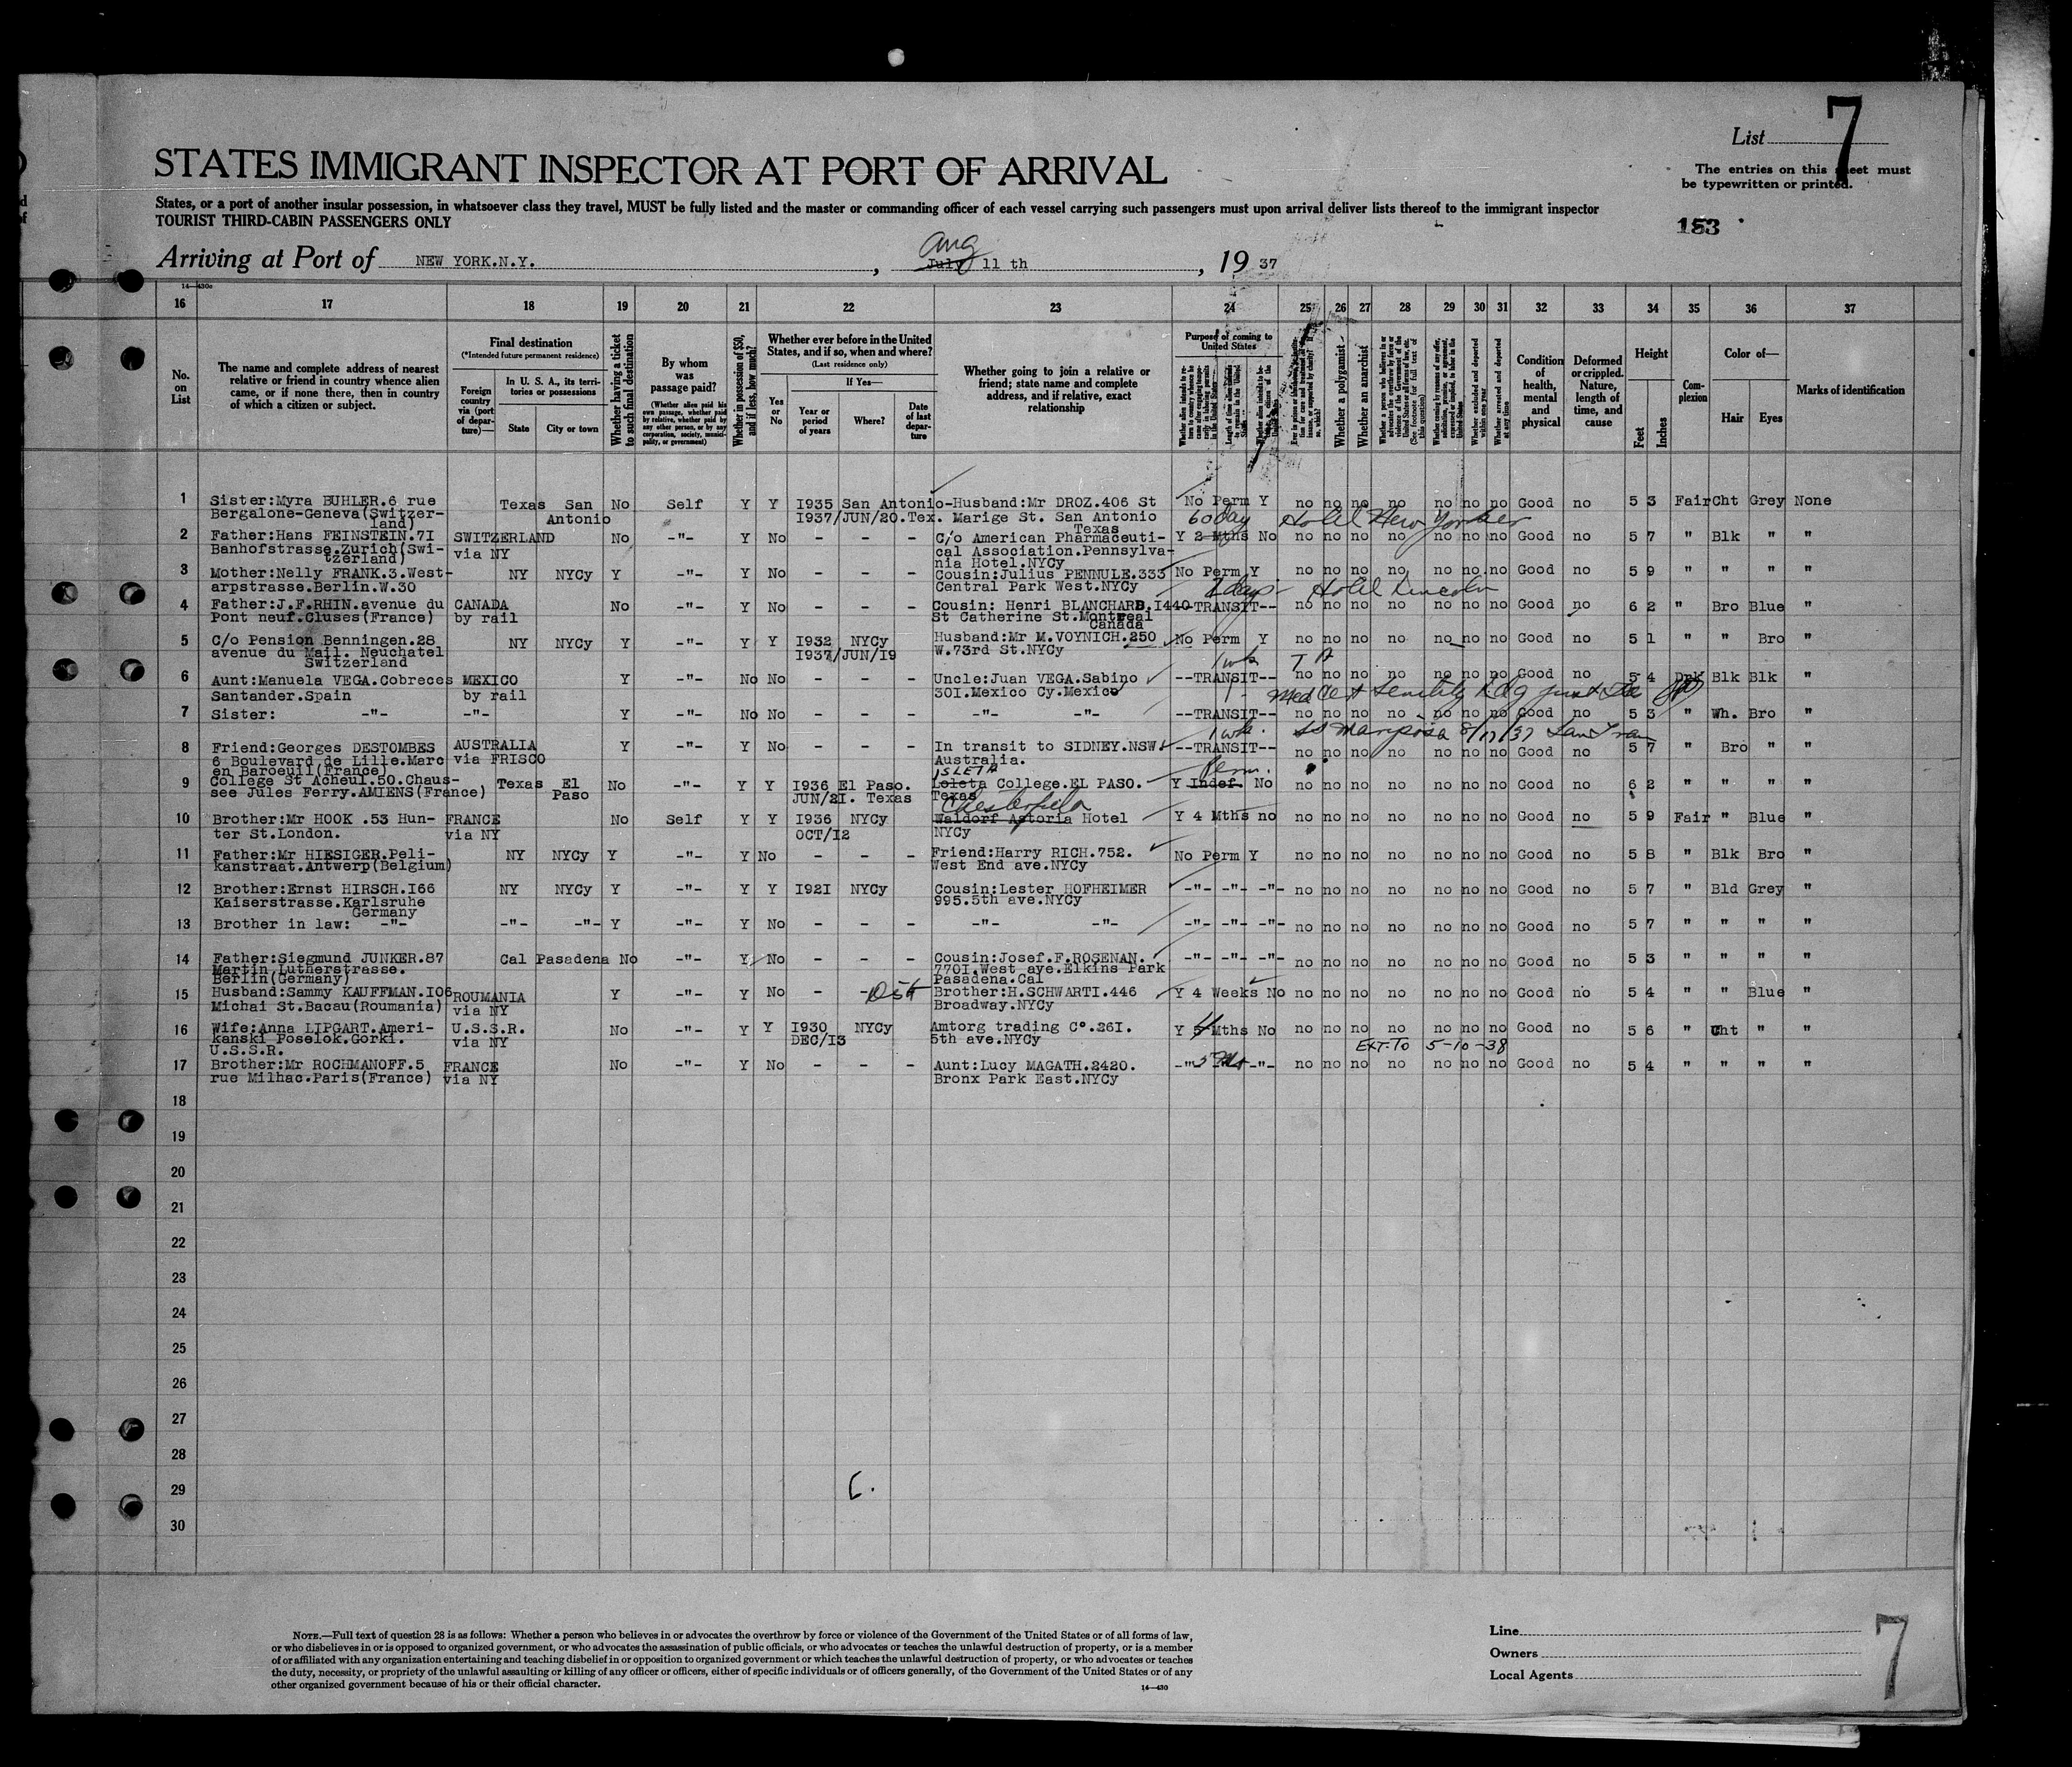 List 7
STATES IMMIGRANT INSPECTOR AT PORT OF ARRIVAL
The entries on this sheet must
be typewritten or printed.
States, or a port of another insular possession, in whatsoever class they travel, MUST be fully listed and the master or commanding officer of each vessel carrying such passengers must upon arrival deliver lists thereof to the immigrant inspector
TOURIST THIRD-CABIN PASSENGERS ONLY
153
Arriving at Port of NEW YORK.N.Y., Aug July 11 th, 19 37
16 17 18 19 20 21 22 23 24 25 26 27 28 29 30 31 32 33 34 35 36 37
No. on List
The name and complete address of nearest relative or friend in country whence alien came, or if none there, then in country of which a citizen or subject.
Final destination
(*Intended future permanent residence)
Foreign country via (port of departure)—
In U. S. A., its territories or possessions
State City or town
Whether having a ticket to such final destination
By whom was passage paid?
(Whether alien paid his own passage, whether paid by relative, whether paid by any other person, or by any corporation, society, municipality, or government)
Whether in possession of $50, and if less, how much?
Whether ever before in the United States, and if so, when and where?
(Last residence only)
Yes or No
If Yes—
Year or period of years
Where?
Date of last departure
Whether going to join a relative or friend; state name and complete address, and if relative, exact relationship
Purpose of coming to United States
Whether a polygamist
Whether an anarchist
Condition of health, mental and physical
Deformed or crippled. Nature, length of time, and cause
Height
Feet Inches
Complexion
Color of—
Hair Eyes
Marks of identification
1 Sister:Myra BUHLER.6 rue Texas San No Self Y Y I935 San Antonio-Husband:Mr DROZ.406 St No Perm Y no no no no no no no Good no 5 3 Fair Cht Grey None
Bergalone-Geneva(Switzerland) Antonio I937/JUN/20.Tex. Marige St. San Antonio Texas
60 day Hotel New Yorker
2 Father:Hans FEINSTEIN.7I SWITZERLAND No -"- Y No - - - C/o American Pharmaceuti- Y 2 Mths No no no no no no no no Good no 5 7 " Blk " "
Banhofstrasse.Zurich(Switzerland) via NY cal Association.Pennsylvania Hotel.NYCy
3 Mother:Nelly FRANK.3.West- NY NYCy Y -"- Y No - - - Cousin:Julius PENNULE.333 No Perm Y no no no no no no no Good no 5 9 " " " "
arpstrasse.Berlin.W.30 Central Park West.NYCy
days- Hotel Lincoln
4 Father:J.F.RHIN.avenue du CANADA No -"- Y No - - - Cousin: Henri BLANCHARD.I440 --TRANSIT-- no no no no no no no Good no 6 2 " Bro Blue "
Pont neuf.Cluses(France) by rail St Catherine St.Montreal Canada
5 C/o Pension Benningen.28 NY NYCy Y -"- Y Y I932 NYCy Husband:Mr M.VOYNICH.250 No Perm Y no no no no no no no Good no 5 1 " " Bro "
avenue du Mail. Neuchatel Switzerland I937/JUN/I9 W.73rd St.NYCy
1 wk
6 Aunt:Manuela VEGA.Cobreces MEXICO Y -"- No No - - - Uncle:Juan VEGA.Sabino --TRANSIT-- no no no no no no no Good no 5 4 Drk Blk Blk "
Santander.Spain by rail 30I.Mexico Cy.Mexico
Med Cert Senility
7 Sister: -"- -"- Y -"- No No - - - -"- -"- --TRANSIT-- no no no no no no no Good no 5 3 " Wh. Bro "
1 wk. SS Mariposa 8/17/37 San Fran
8 Friend:Georges DESTOMBES AUSTRALIA Y -"- Y No - - - In transit to SIDNEY.NSW --TRANSIT-- no no no no no no no Good no 5 7 " Bro " "
6 Boulevard de Lille.Marc en Baroeuil(France) via FRISCO Australia.
ISLETA Perm.
9 College St Acheul.50.Chaus- Texas El No -"- Y Y I936 El Paso. Loleta College.EL PASO. Y Indef. No no no no no no no no Good no 6 2 " " " "
see Jules Ferry.AMIENS(France) Paso JUN/2I. Texas Texas
Chesterfield
10 Brother:Mr HOOK .53 Hun- FRANCE No Self Y Y I936 NYCy Waldorf Astoria Hotel Y 4 Mths no no no no no no no no Good no 5 9 Fair " Blue "
ter St.London. via NY OCT/I2 NYCy
11 Father:Mr HIESIGER.Peli- NY NYCy Y -"- Y No - - - Friend:Harry RICH.752. No Perm Y no no no no no no no Good no 5 8 " Blk Bro "
kanstraat.Antwerp(Belgium) West End ave.NYCy
12 Brother:Ernst HIRSCH.I66 NY NYCy Y -"- Y Y I92I NYCy Cousin:Lester HOFHEIMER -"- -"- -"- no no no no no no no Good no 5 7 " Bld Grey "
Kaiserstrasse.Karlsruhe Germany 995.5th ave.NYCy
13 Brother in law: -"- -"- -"- Y -"- Y No - - - -"- -"- -"- -"- -"- no no no no no no no Good no 5 7 " " " "
14 Father:Siegmund JUNKER.87 Cal Pasadena No -"- Y No - - - Cousin:Josef.F.ROSENAN. -"- -"- -"- no no no no no no no Good no 5 3 " " " "
Martin Lutherstrasse. Berlin(Germany) 770I.West ave.Elkins Park Pasadena.Cal
15 Husband:Sammy KAUFFMAN.I06 ROUMANIA Y -"- Y No - - Brother:H.SCHWARTI.446 Y 4 Weeks No no no no no no no no Good no 5 4 " " Blue "
Michai St.Bacau(Roumania) via NY Broadway.NYCy
16 Wife:Anna LIPGART.Ameri- U.S.S.R. No -"- Y Y I930 NYCy Amtorg trading C°.26I. Y 4 Mths No no no no no no no no Good no 5 6 " Cht " "
kanski Poselok.Gorki. U.S.S.R. via NY DEC/I3 5th ave.NYCy
EXT-TO 5-10-38
17 Brother:Mr ROCHMANOFF.5 FRANCE No -"- Y No - - - Aunt:Lucy MAGATH.2420. -"- -"- no no no no no no no Good no 5 4 " " " "
rue Milhac.Paris(France) via NY Bronx Park East.NYCy
18
19
20
21
22
23
24
25
26
27
28
29
30
NOTE.—Full text of question 28 is as follows: Whether a person who believes in or advocates the overthrow by force or violence of the Government of the United States or of all forms of law,
or who disbelieves in or is opposed to organized government, or who advocates the assassination of public officials, or who advocates or teaches the unlawful destruction of property, or is a member
of or affiliated with any organization entertaining and teaching disbelief in or opposition to organized government or which teaches the unlawful destruction of property, or who advocates or teaches
the duty, necessity, or propriety of the unlawful assaulting or killing of any officer or officers, either of specific individuals or of officers generally, of the Government of the United States or of any
other organized government because of his or their official character.
14—430
Line
Owners
Local Agents
7